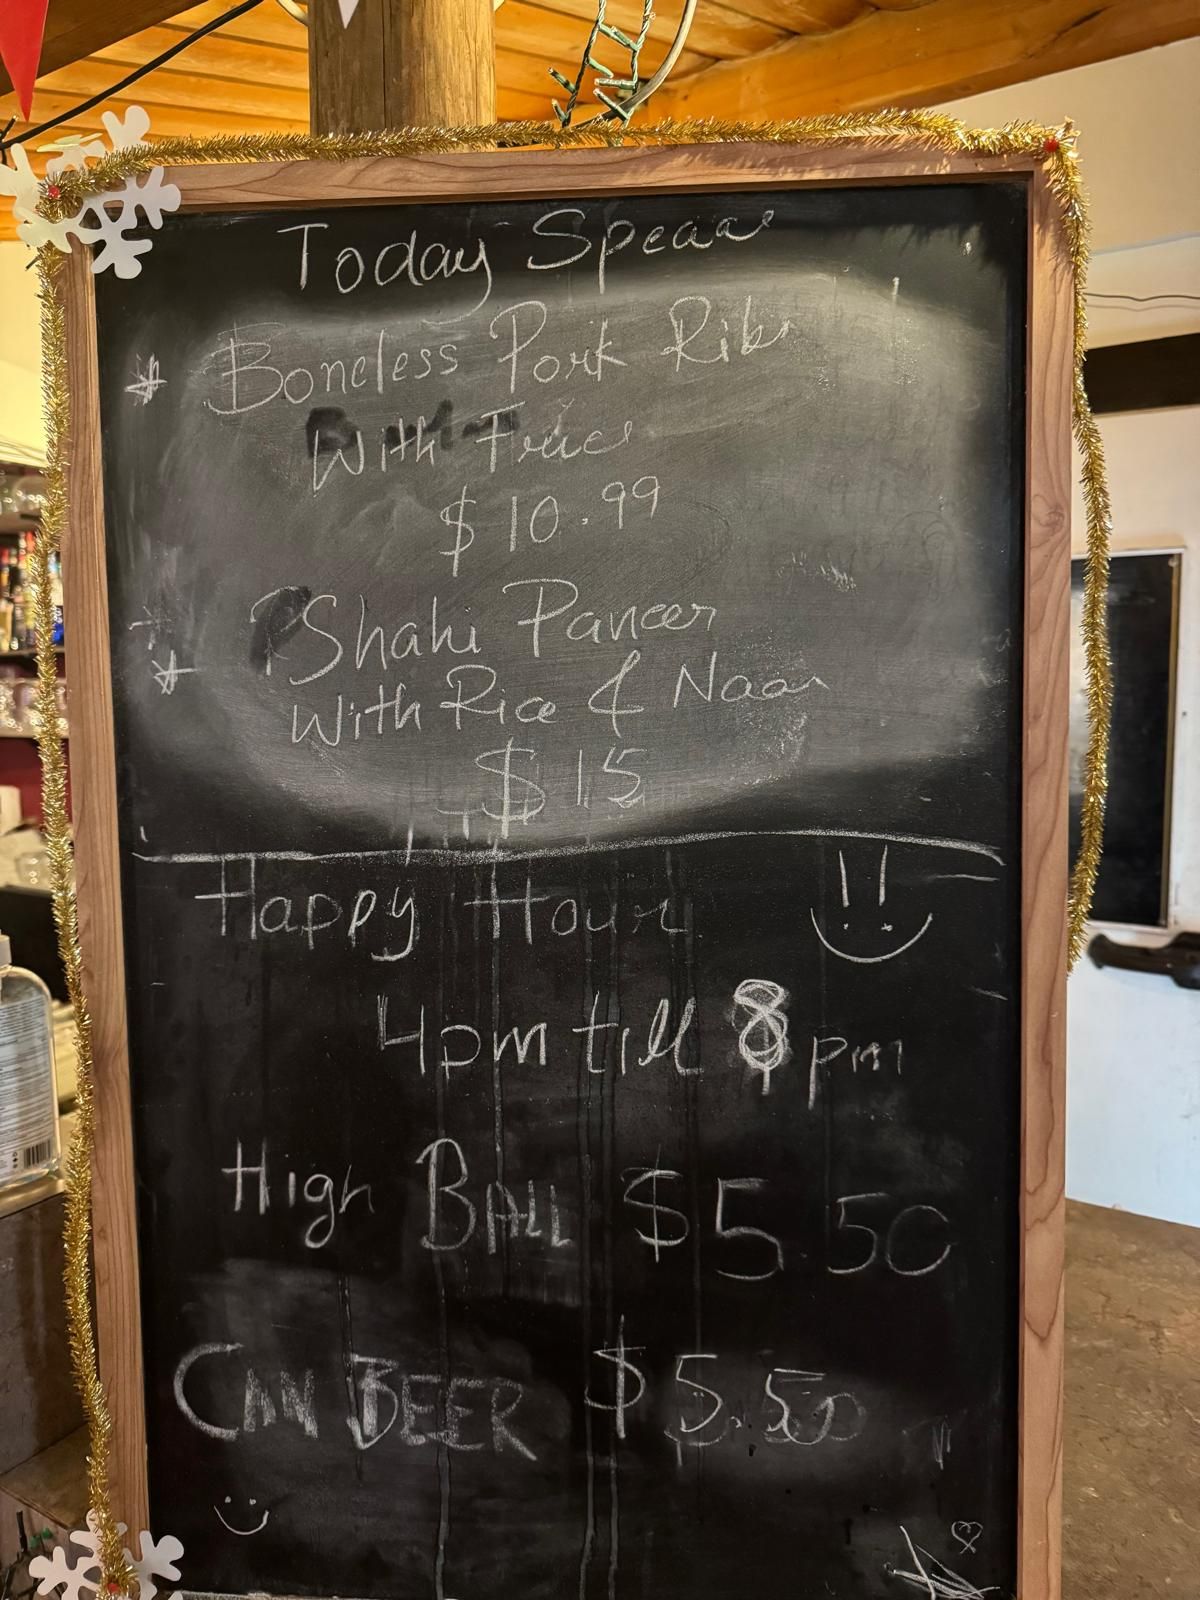 Today Special
Boneless Pork Ribs
With Fries
$10.99
Shahi Paneer
With Rice & Naan
$15
Happy Hour
4pm till 8pm
High BALL $5.50
CAN BEER $5.50